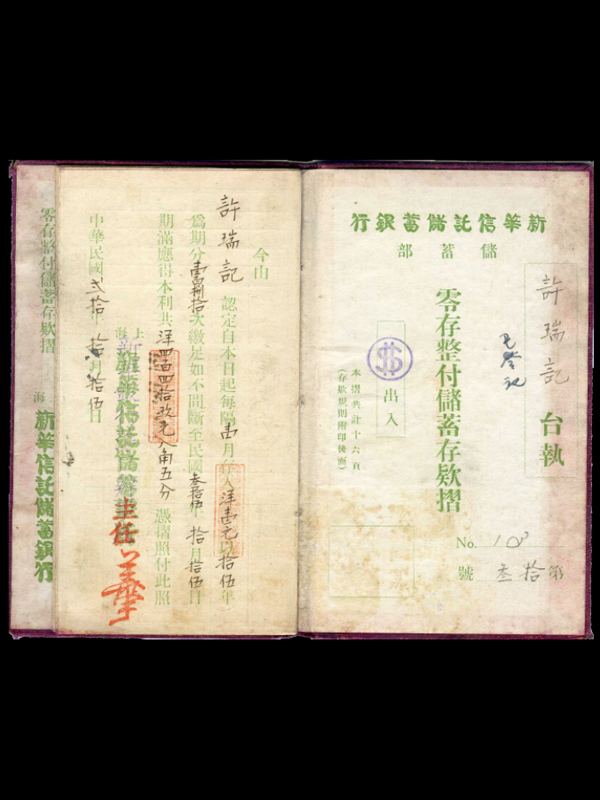 新華信託儲蓄銀行
儲蓄部
許瑞記 台執
第拾叁號
No.
已登記
零存整付儲蓄存欵摺
$ 出入
本摺共計十六頁
(存欵規則附印後面)
今由
許瑞記 認定自本日起每隔壹月存入洋壹元以拾伍年
為期分壹百捌拾次繳足如不間斷至民國叁拾伍年拾月拾伍日
期滿應得本利共洋四百四拾玖元八角五分 憑摺照付此照
上海新華信託儲蓄銀行主任
中華民國弍拾年拾月拾伍日
零存整付儲蓄存欵摺
海 新華信託儲蓄銀行